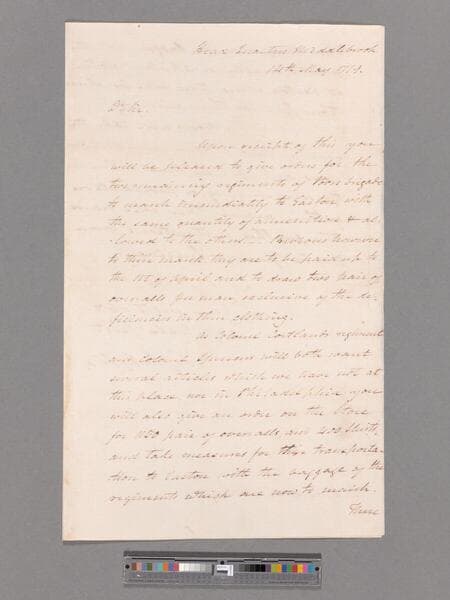 Head Quarters Middlebrook
14th May 1779.
D Sir.
Upon receipt of this you
will be pleased to give orders for the
two remaining regiments of Poors brigade
to march immediately to Easton with
the same quantity of ammunition & al-
lowed to the others. Previous however
to their march they are to be paid up to
the 1st of April and to draw two pair of
overalls per man exclusive of the de-
ficiencies in their clothing.
As Colonel Cortlands regiment
and Colonel Spencers will both want
several articles which we have not at
this place nor in Philadelphia you
will also give an order on the Store
for pair of overalls and 400 Shirts,
and take measures for their transporta-
tion to Easton with the baggage of the
regiments which are now to march.
There